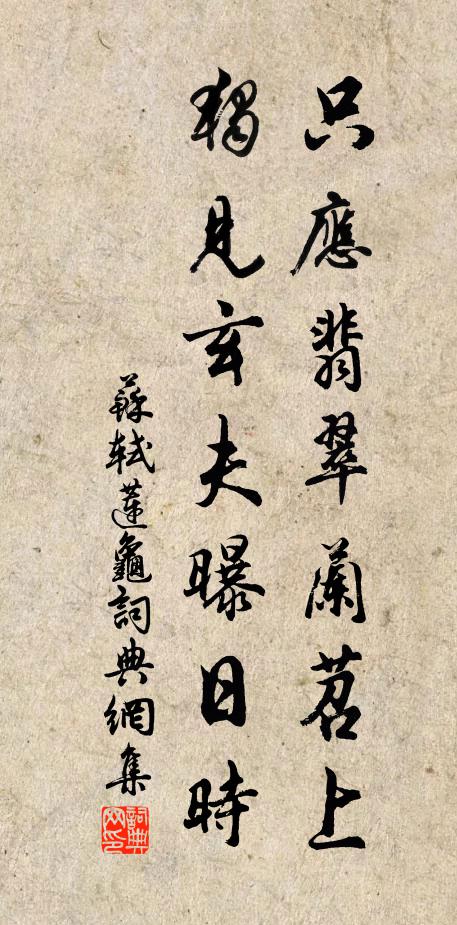 只應翡翠蘭苕上
獨見玄夫曝日時
蘇軾蓮龜詞典網集
詞典網印